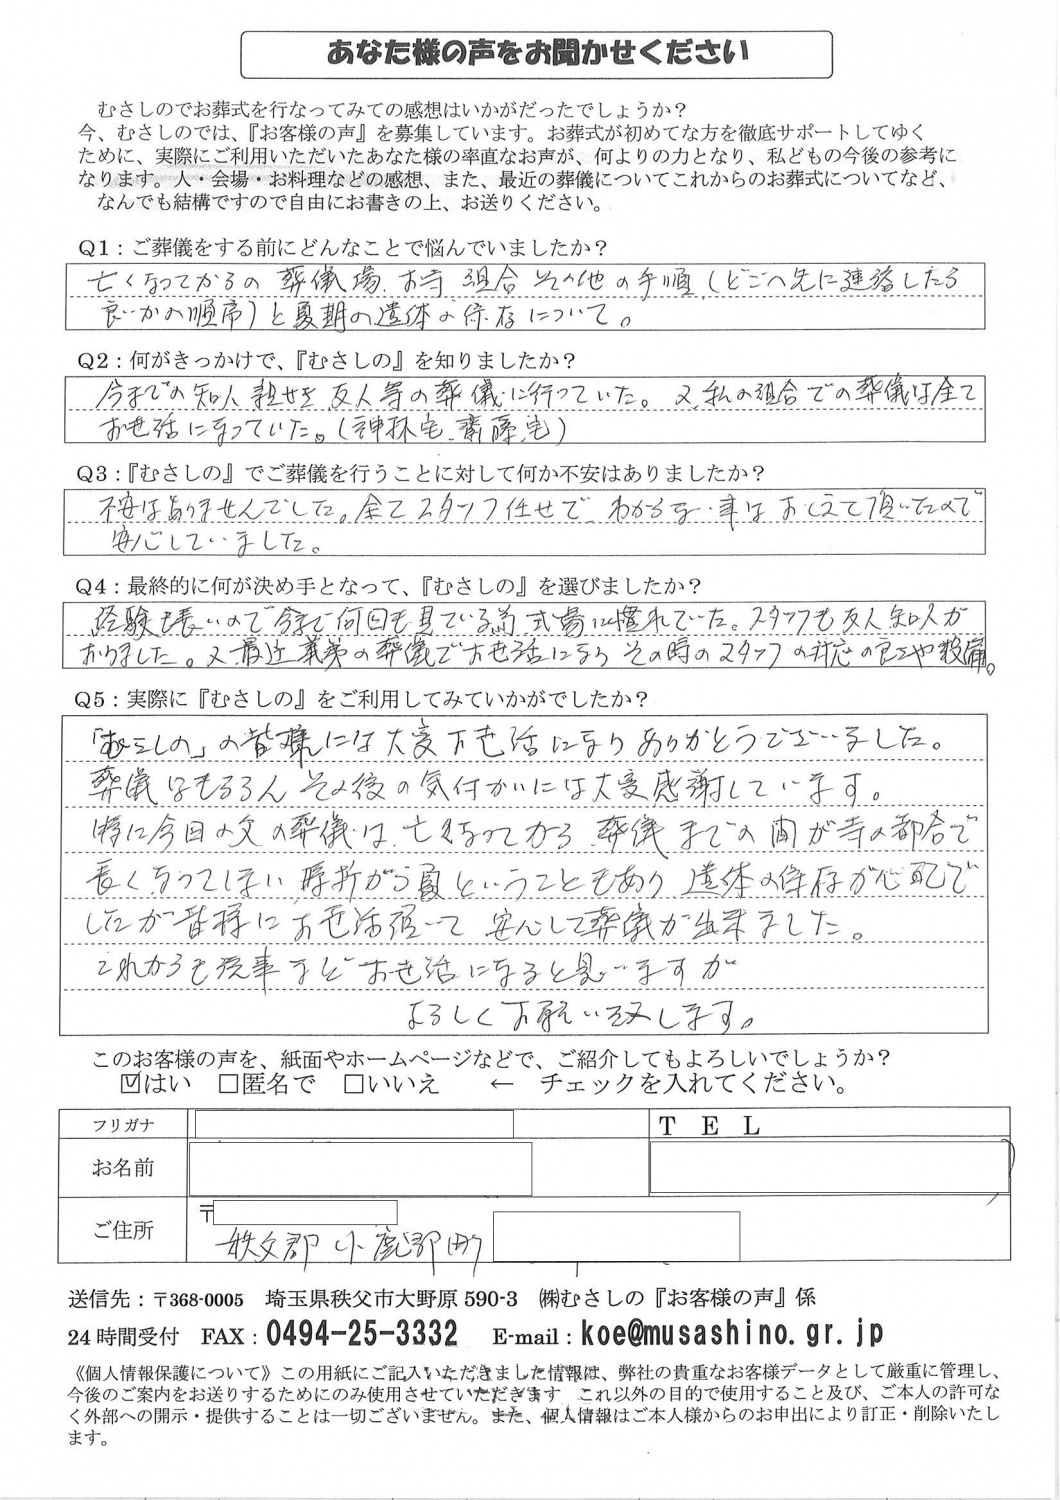 あなた様の声をお聞かせください
むさしのでお葬式を行なってみての感想はいかがだったでしょうか？
今、むさしのでは、『お客様の声』を募集しています。お葬式が初めてな方を徹底サポートしてゆく
ために、実際にご利用いただいたあなた様の率直なお声が、何よりの力となり、私どもの今後の参考に
なります。人・会場・お料理などの感想、また、最近の葬儀についてこれからのお葬式についてなど、
なんでも結構ですので自由にお書きの上、お送りください。
Q1：ご葬儀をする前にどんなことで悩んでいましたか？
亡くなってからの 葬儀場、お寺 組合 その他の手順（どこへ先に連絡したら
良いかの順序）と夏期の遺体の保存について。
Q2：何がきっかけで、『むさしの』を知りましたか？
今までの知人 親せき 友人等の葬儀に行っていた。又、私の組合での葬儀は全て
お世話になっていた。（神林宅、齋藤宅）
Q3：『むさしの』でご葬儀を行うことに対して何か不安はありましたか？
不安はありませんでした。全てスタッフ任せで わからない事は おしえて頂いたので
安心していました。
Q4：最終的に何が決め手となって、『むさしの』を選びましたか？
経験も長いので今まで何回も見ている為 式場に慣れていた。スタッフも友人知人が
おりました。又、最近義弟の葬儀でお世話になり その時のスタッフの対応の良さや設備。
Q5：実際に『むさしの』をご利用してみていかがでしたか？
「むさしの」の皆様には大変お世話になりありがとうございました。
葬儀はもちろん その後の気付かいには大変感謝しています。
特に今回の父の葬儀は 亡くなってから 葬儀までの間が寺の都合で
長くなってしまい 時折がら夏ということもあり 遺体の保存が心配で
したが皆様にお世話頂いて 安心して葬儀が出来ました。
これからも法事などお世話になると思いますが
よろしくお願い致します。
このお客様の声を、紙面やホームページなどで、ご紹介してもよろしいでしょうか？
☑はい □匿名で □いいえ ← チェックを入れてください。
フリガナ TEL
お名前
ご住所 〒
秩父郡 小鹿野町
送信先：〒368-0005 埼玉県秩父市大野原 590-3 ㈱むさしの『お客様の声』係
24 時間受付 FAX：0494-25-3332 E-mail：koe@musashino.gr.jp
《個人情報保護について》この用紙にご記入いただきました情報は、弊社の貴重なお客様データとして厳重に管理し、
今後のご案内をお送りするためにのみ使用させていただきます。これ以外の目的で使用すること及び、ご本人の許可な
く外部への開示・提供することは一切ございません。また、個人情報はご本人様からのお申出により訂正・削除いたし
ます。